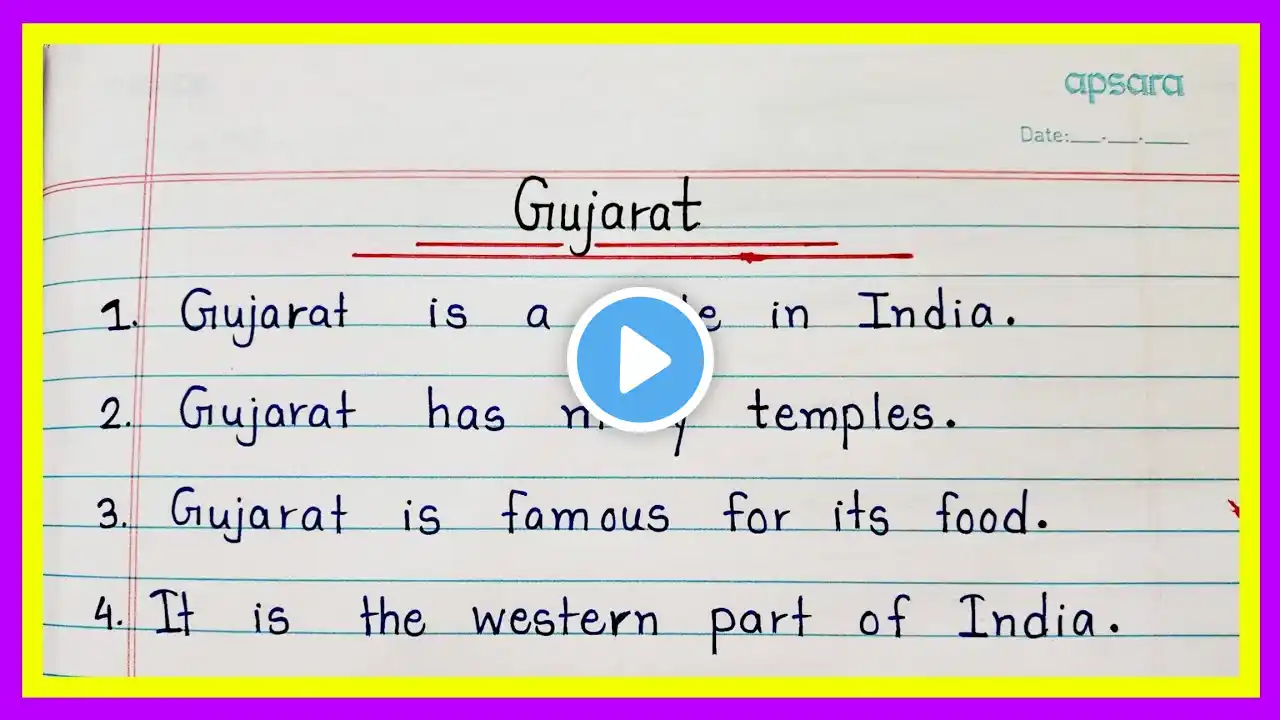 apsara
Date:__.__.__
Gujarat
1. Gujarat is a in India.
2. Gujarat has temples.
3. Gujarat is famous for its food.
4. It is the western part of India.